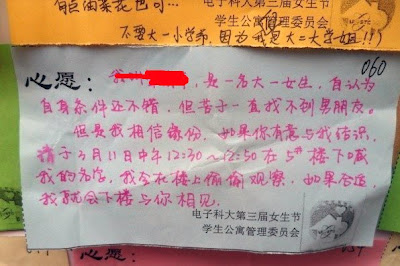 电子科大第三届女生节
不要大一小学弟,因为我是大二大学姐!!!)
学生公寓管理委员会
060
心愿:
,是一名大一女生,自认为
自身条件还不错,但苦于一直找不到男朋友。
但是我相信缘份,如果你有意与我结识,
请于3月11日中午12:30~12:50在5#楼下喊
我的名字,我会在楼上偷偷观察,如果合适,
我就会下楼与你相见。
电子科大第三届女生节
学生公寓管理委员会
心愿: